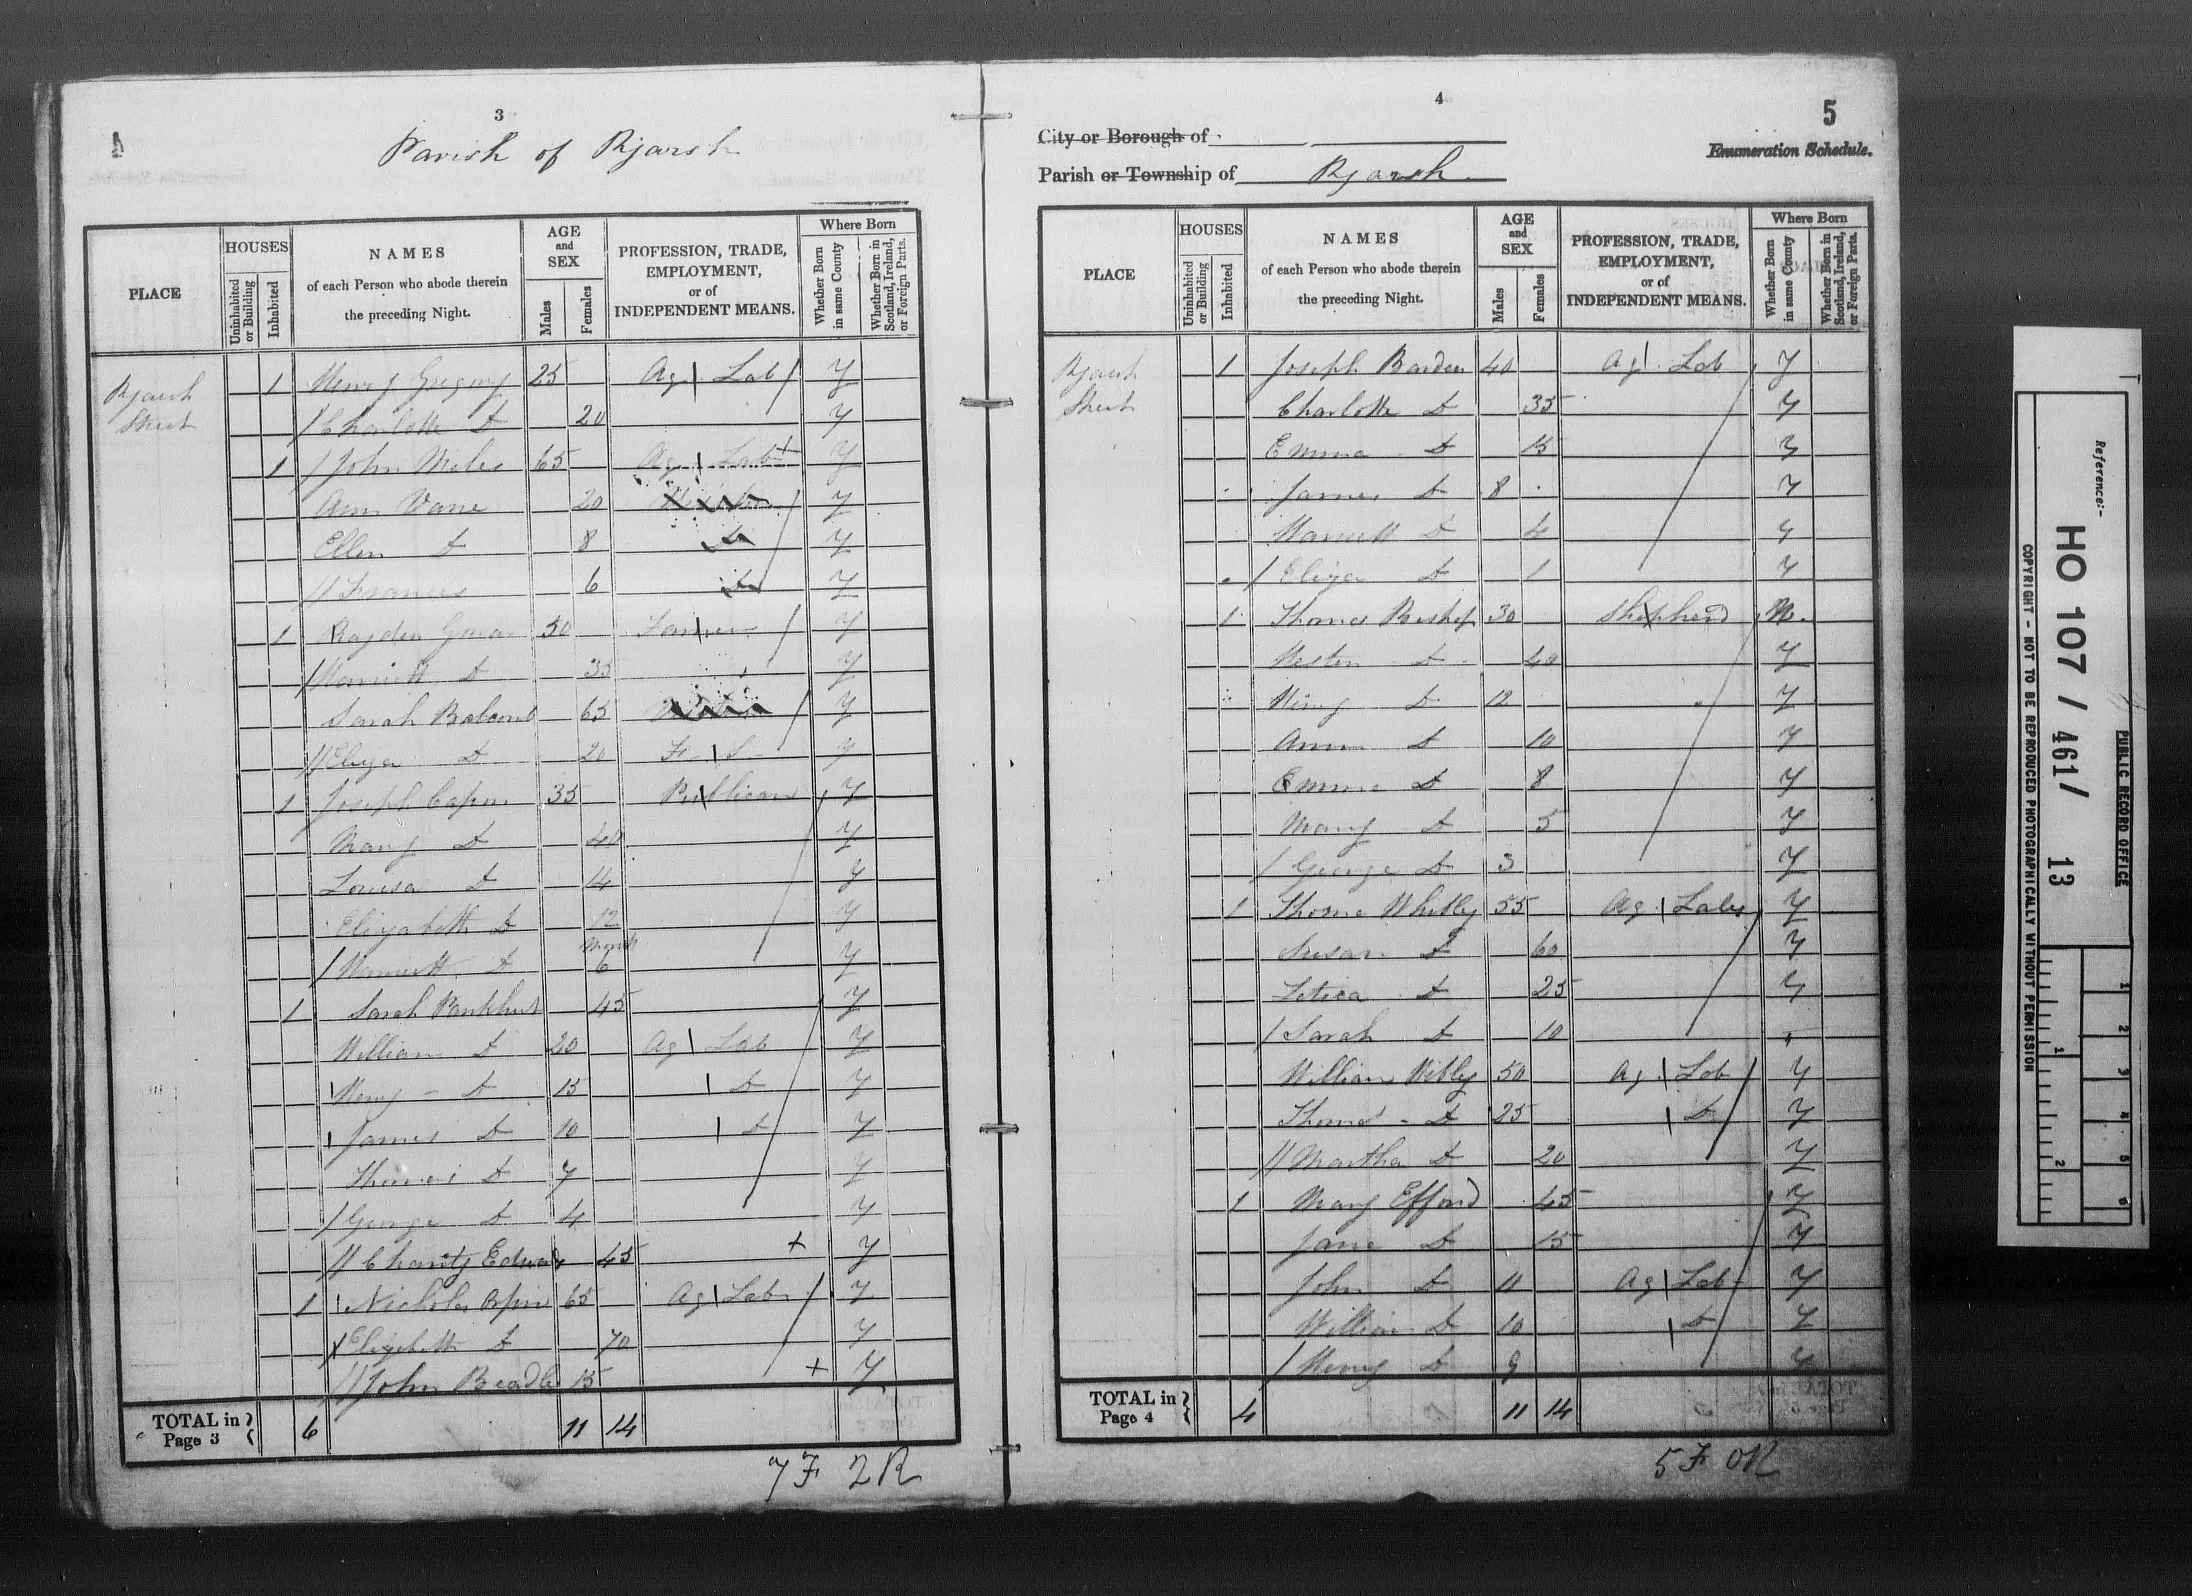 3
Parish of Ryarsh
PLACE
HOUSES
Uninhabited or Building
Inhabited
NAMES
of each Person who abode therein
the preceding Night.
AGE
and
SEX
Males
Females
PROFESSION, TRADE,
EMPLOYMENT,
or of
INDEPENDENT MEANS.
Where Born
Whether Born in same County
Whether Born in Scotland, Ireland, or Foreign Parts.
Ryarsh 1 Henry Gregory 25 Ag Lab Y
Street Charlotte Do 20 Y
1 John Miles 65 Ag Lab + Y
Ann Vane 20 Y
Ellen Do 8 Do Y
Frances 6 Do Y
1 50 Farmer Y
Harriett Do 35 Y
Sarah Balcomb 65 Y
Eliza Do 20 F S Y
1 Joseph Capon 35 Publican Y
Mary Do 40 Y
Louisa Do 14 Y
Elizabeth Do 12 Y
Month
Harriett Do 6 Y
1 Sarah Pankhurst 45 Y
William Do 20 Ag Lab Y
Henry Do 15 Do Y
James Do 10 Do Y
Thomas Do 7 Y
George Do 4 Y
Charity Edwards 45 + Y
1 Nicholas 65 Ag Lab Y
Elizabeth Do 70 Y
John Beadle 15 + Y
TOTAL in Page 3 6 11 14
7 F 2 R
4
5
City or Borough of
Enumeration Schedule.
Parish or Township of Ryarsh
PLACE
HOUSES
Uninhabited or Building
Inhabited
NAMES
of each Person who abode therein
the preceding Night.
AGE
and
SEX
Males
Females
PROFESSION, TRADE,
EMPLOYMENT,
or of
INDEPENDENT MEANS.
Where Born
Whether Born in same County
Whether Born in Scotland, Ireland, or Foreign Parts.
Ryarsh 1 Joseph Barden 40 Ag Lab Y
Street Charlotte Do 35 Y
Emma Do 15 Y
James Do 8 Y
Harriett Do 4 Y
Eliza Do 1 Y
1 Thomas Bishop 30 Shepherd N
Hester Do 40 Y
Henry Do 12 Y
Ann Do 10 Y
Emma Do 8 Y
Mary Do 5 Y
George Do 3 Y
1 Thomas Whibly 55 Ag Lab Y
Susan Do 60 Y
Letica Do 25 Y
Sarah Do 10 Y
William Wibly 50 Ag Lab Y
Thomas Do 25 Do Y
Martha Do 20 Y
1 Mary Efford 45 Y
Jane Do 15 Y
John Do 11 Ag Lab Y
William Do 10 Do Y
Henry Do 9 Y
TOTAL in Page 4 4 11 14
5 F 0 R
PUBLIC RECORD OFFICE
Reference:-
HO 107 / 461 / 13
COPYRIGHT - NOT TO BE REPRODUCED PHOTOGRAPHICALLY WITHOUT PERMISSION
1 2 3 4 5 6
1 2